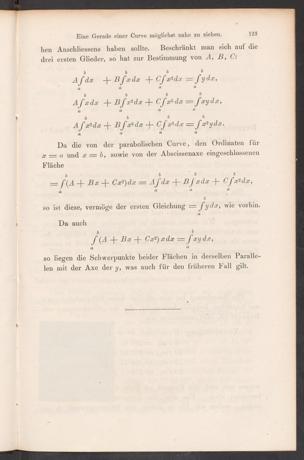 Eine Gerade einer Curve möglichst nahe zu ziehen. 123
hen Anschliessens haben sollte. Beschränkt man sich auf die
drei ersten Glieder, so hat zur Bestimmung von A, B, C:
A∫ₐᵇdx + B∫ₐᵇxdx + C∫ₐᵇx²dx = ∫ₐᵇydx,
A∫ₐᵇxdx + B∫ₐᵇx²dx + C∫ₐᵇx³dx = ∫ₐᵇxydx,
A∫ₐᵇx²dx + B∫ₐᵇx³dx + C∫ₐᵇx⁴dx = ∫ₐᵇx²ydx.
Da die von der parabolischen Curve, den Ordinaten für
x = a und x = b, sowie von der Abscissenaxe eingeschlossenen
Fläche
= ∫ₐᵇ(A + Bx + Cx²)dx = A∫ₐᵇdx + B∫ₐᵇxdx + C∫ₐᵇx²dx,
so ist diese, vermöge der ersten Gleichung = ∫ₐᵇydx, wie vorhin.
Da auch
∫ₐᵇ(A + Bx + Cx²)xdx = ∫ₐᵇxydx,
so liegen die Schwerpunkte beider Flächen in derselben Paralle-
len mit der Axe der y, was auch für den früheren Fall gilt.